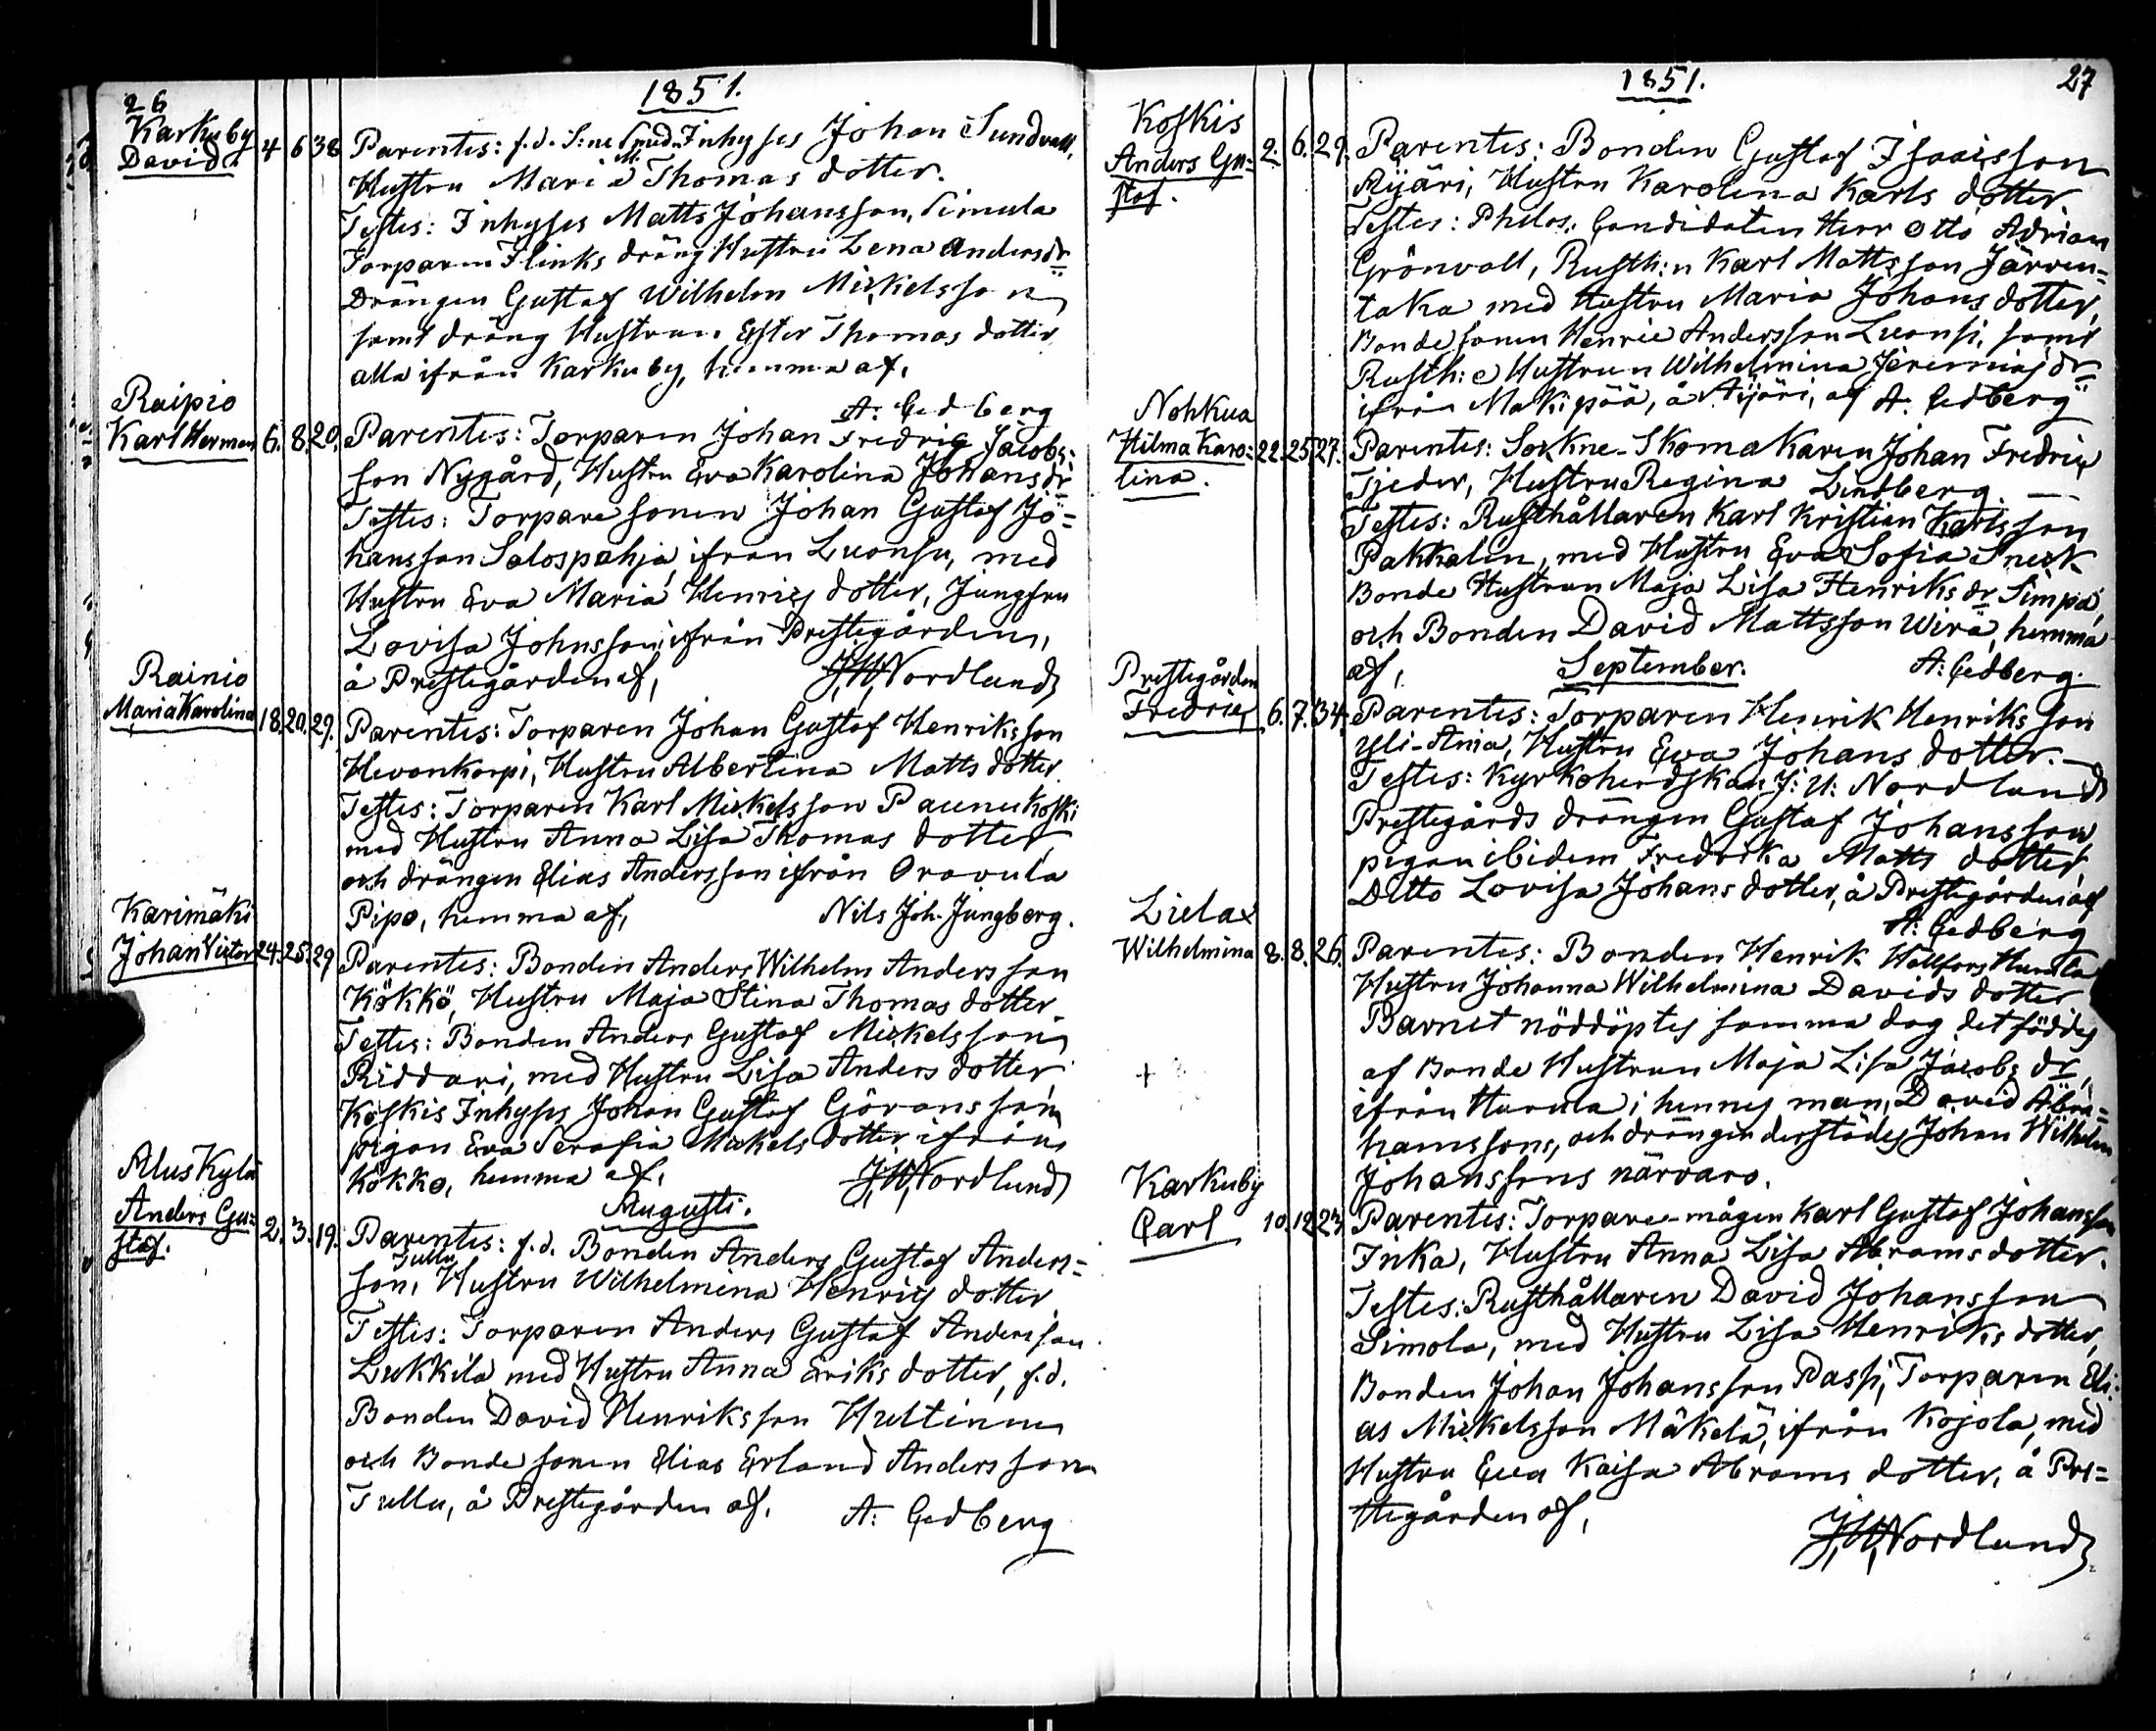 26
1851.
Karkuby
David 4 6 38 Parentes: f.d. S:ne Smed. Inhyses Johan Sundvall,
Hustru Maria Thomas dotter.
Testes: Inhyses Matts Johansson, Simula
Torparen Flinks dräng Hustru Lena Anders dr
Drängen Gustaf Wilhelm Mickelsson
samt dräng Hustrun Ester Thomas dotter
alla ifrån Karkuby, hemma af,
A: Cedberg
Raipio
Karl Herman 6. 8. 20. Parentes: Torparen Johan Fredric Jacobs-
son Nygård, Hustru Eva Karolina Johans dr
Testes: Torpare sonen Johan Gustaf Jo=
hansson Salospohja ifrån Luonsu, med
Hustru Eva Maria Henrics dotter, Jungfru
Lovisa Johnsson, ifrån Prestegården,
å Prestegården af, J.U. Nordlund
Rainio
Maria Karolina 18. 20. 29. Parentes: Torparen Johan Gustaf Henriksson
Hevonkorpi, Hustru Albertina Matts dotter
Testes: Torparen Karl Mickelsson Paunukoski
med Hustru Anna Lisa Thomas dotter
och drängen Elias Andersson ifrån Oravula
Pipo, hemma af, Nils Joh. Jungberg.
Karimäki
Johan Victor 24. 25. 29 Parentes: Bonden Anders Wilhelm Andersson
Kökkö, Hustru Maja Stina Thomas dotter.
Testes: Bonden Anders Gustaf Mickelsson
Riddari, med Hustru Lisa Anders dotter
Koskis Inhyses Johan Gustaf Göransson
pigan Eva Serafia Mickels dotter ifrån
Kökkö, hemma af, J.U. Nordlund
Augusti.
Aluskylä
Anders Gu=
staf. 2. 3. 19. Parentes: f.d. Bonden Anders Gustaf Anders=
son, Tullu Hustru Wilhelmina Henrics dotter
Testes: Torparen Anders Gustaf Andersson
Lukkila med Hustru Anna Eriks dotter, f.d.
Bonden David Henriksson Huttinen
och Bonde sonen Elias Erland Andersson
Tullu, å Prestegården af, A: Cedberg
1851.
27
Koskis
Anders Gu=
staf. 2. 6. 29. Parentes: Bonden Gustaf Isaaisson
Äijäri, Hustru Karolina Karls dotter
Testes: Philos. Candidaten Herr Otto Adrian
Grönvall, Rusth:n Karl Mattsson Järven=
taka med Hustru Maria Johans dotter,
Bonde sonen Henric Andersson Luonsi, samt
Rusth:e Hustrun Wilhelmina Jeremias dr
ifrån Makipää, å Äijäri, af A. Cedberg
Nohkua
Hilma Karo=
lina. 22. 25. 27. Parentes: Sockne-Skomakaren Johan Fredric
Tjeder, Hustru Regina Lindberg.
Testes: Rusthållaren Karl Kristian Karlsson
Pakkalin, med Hustru Eva Sofia Sneck
Bonde Hustrun Maja Lisa Henriks dr Simpa,
och Bonden David Mattsson Wira, hemma
af, A: Cedberg.
September.
Prestegården
Fredric 6. 7. 34. Parentes: Torparen Henrik Henriksson
Yli-Ania, Hustru Eva Johans dotter.
Testes: Kyrkoherdskan J: U: Nordlund
Prestegårds drängen Gustaf Johansson
pigan ibidem Fredrika Matts dotter
Ditto Lovisa Johans dotter, å Prestegården af
A: Cedberg
Liela
Wilhelmina 8. 8. 26. Parentes: Bonden Henrik Hällfors Hurula
Hustru Johanna Wilhelmina Davids dotter
Barnet nöddöptes samma dag det föddes
+ af Bonde Hustrun Maja Lisa Jacobs dr,
ifrån Hurula i hennes man, David Abra=
hamssons, och drängen derstädes Johan Wilhelm
Johanssons närvaro.
Karkuby
Carl 10. 12. 23. Parentes: Torpare-mågen Karl Gustaf Johansson
Inka, Hustru Anna Lisa Abramsdotter.
Testes: Rusthållaren David Johansson
Simola, med Hustru Lisa Henriks dotter,
Bonden Johan Johansson Passi, Torparen Eli=
as Mickelsson Mäkelä, ifrån Kojola, med
Hustru Eva Kaisa Abrams dotter, å Pre=
stegården af,
J.U. Nordlund